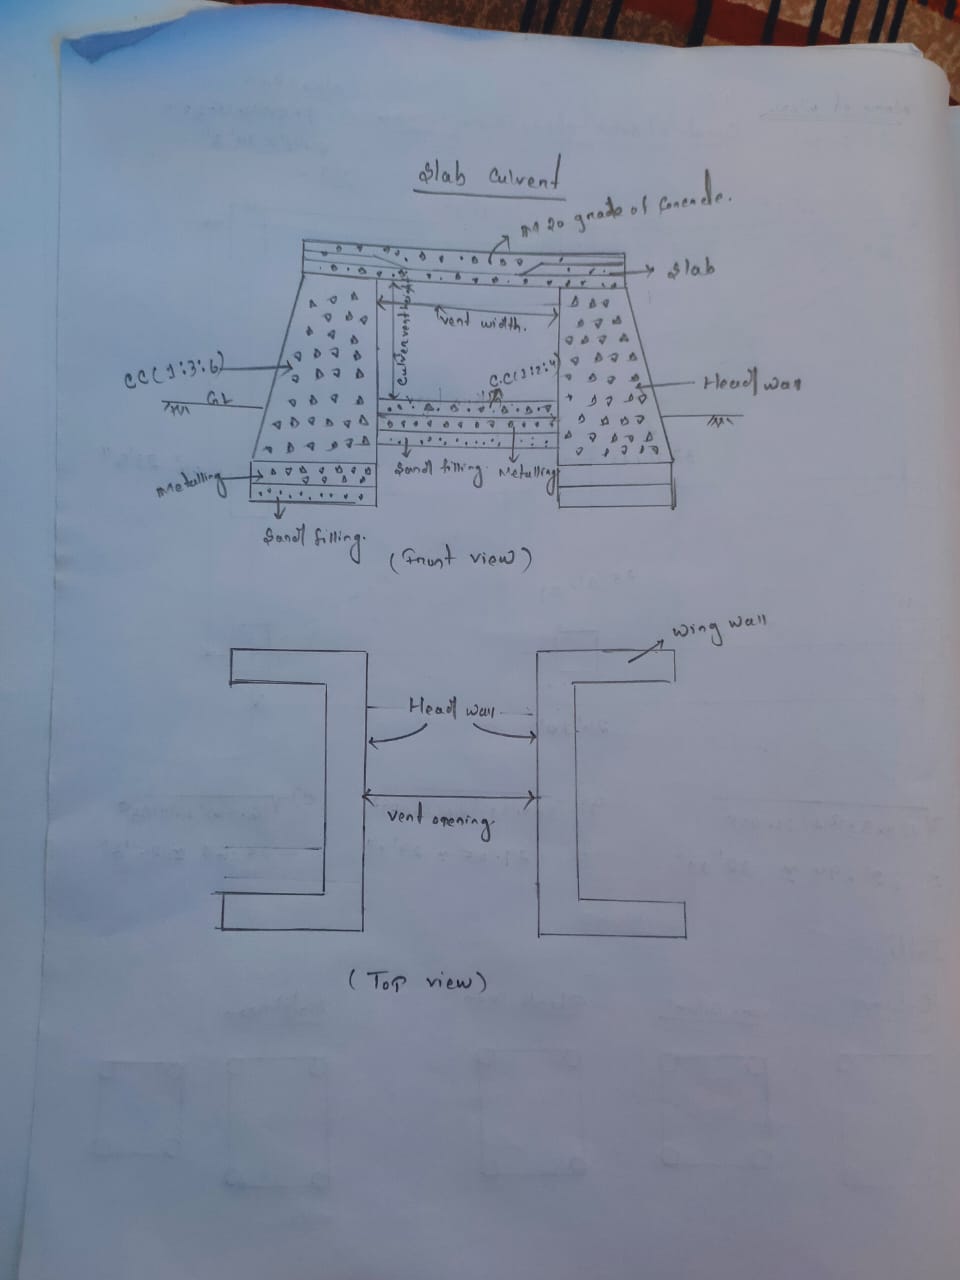 Slab Culvent
M20 grade of Concrete.
Slab
Vent width.
Culvert vent height
CC(1:3:6)
C.C(1:2:4)
Head wall
GL
Metalling
Sand filling.
Metalling
Sand filling.
(Front view)
Wing wall
Head wall
Vent opening.
(Top view)